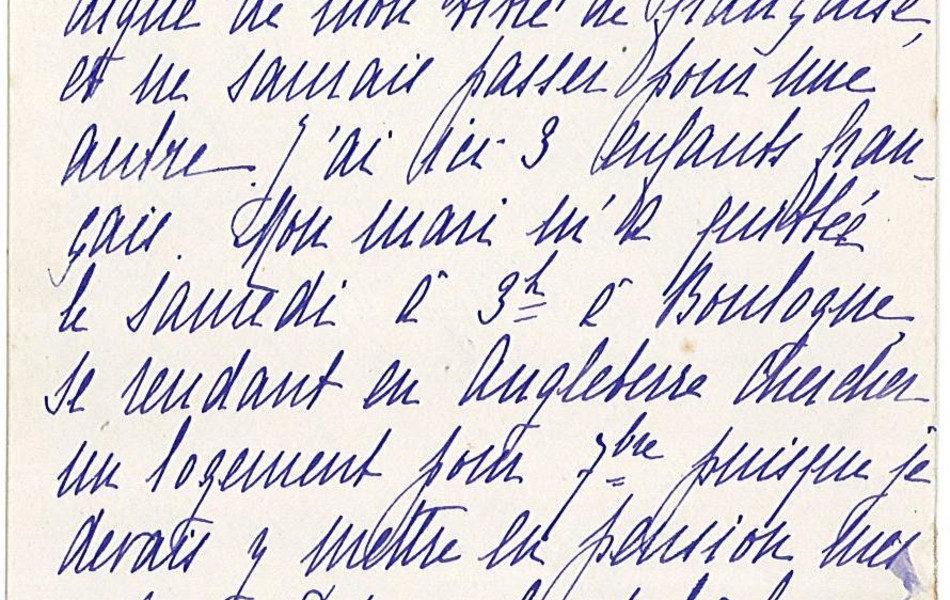 digne de mon titre de française,
et ne saurais passer pour une
autre. J'ai ici 3 enfants fran-
çais. Mon mari m'a quittée
le samedi à 3h à Boulogne,
se rendant en Angleterre chercher
un logement pour 7bre puisque je
devais y mettre en pension mes